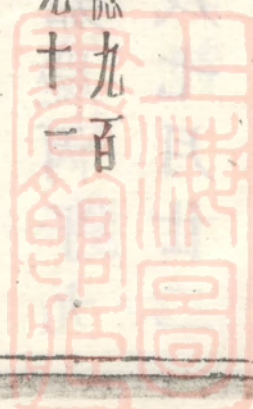 九百
十一
上海圖
書館藏